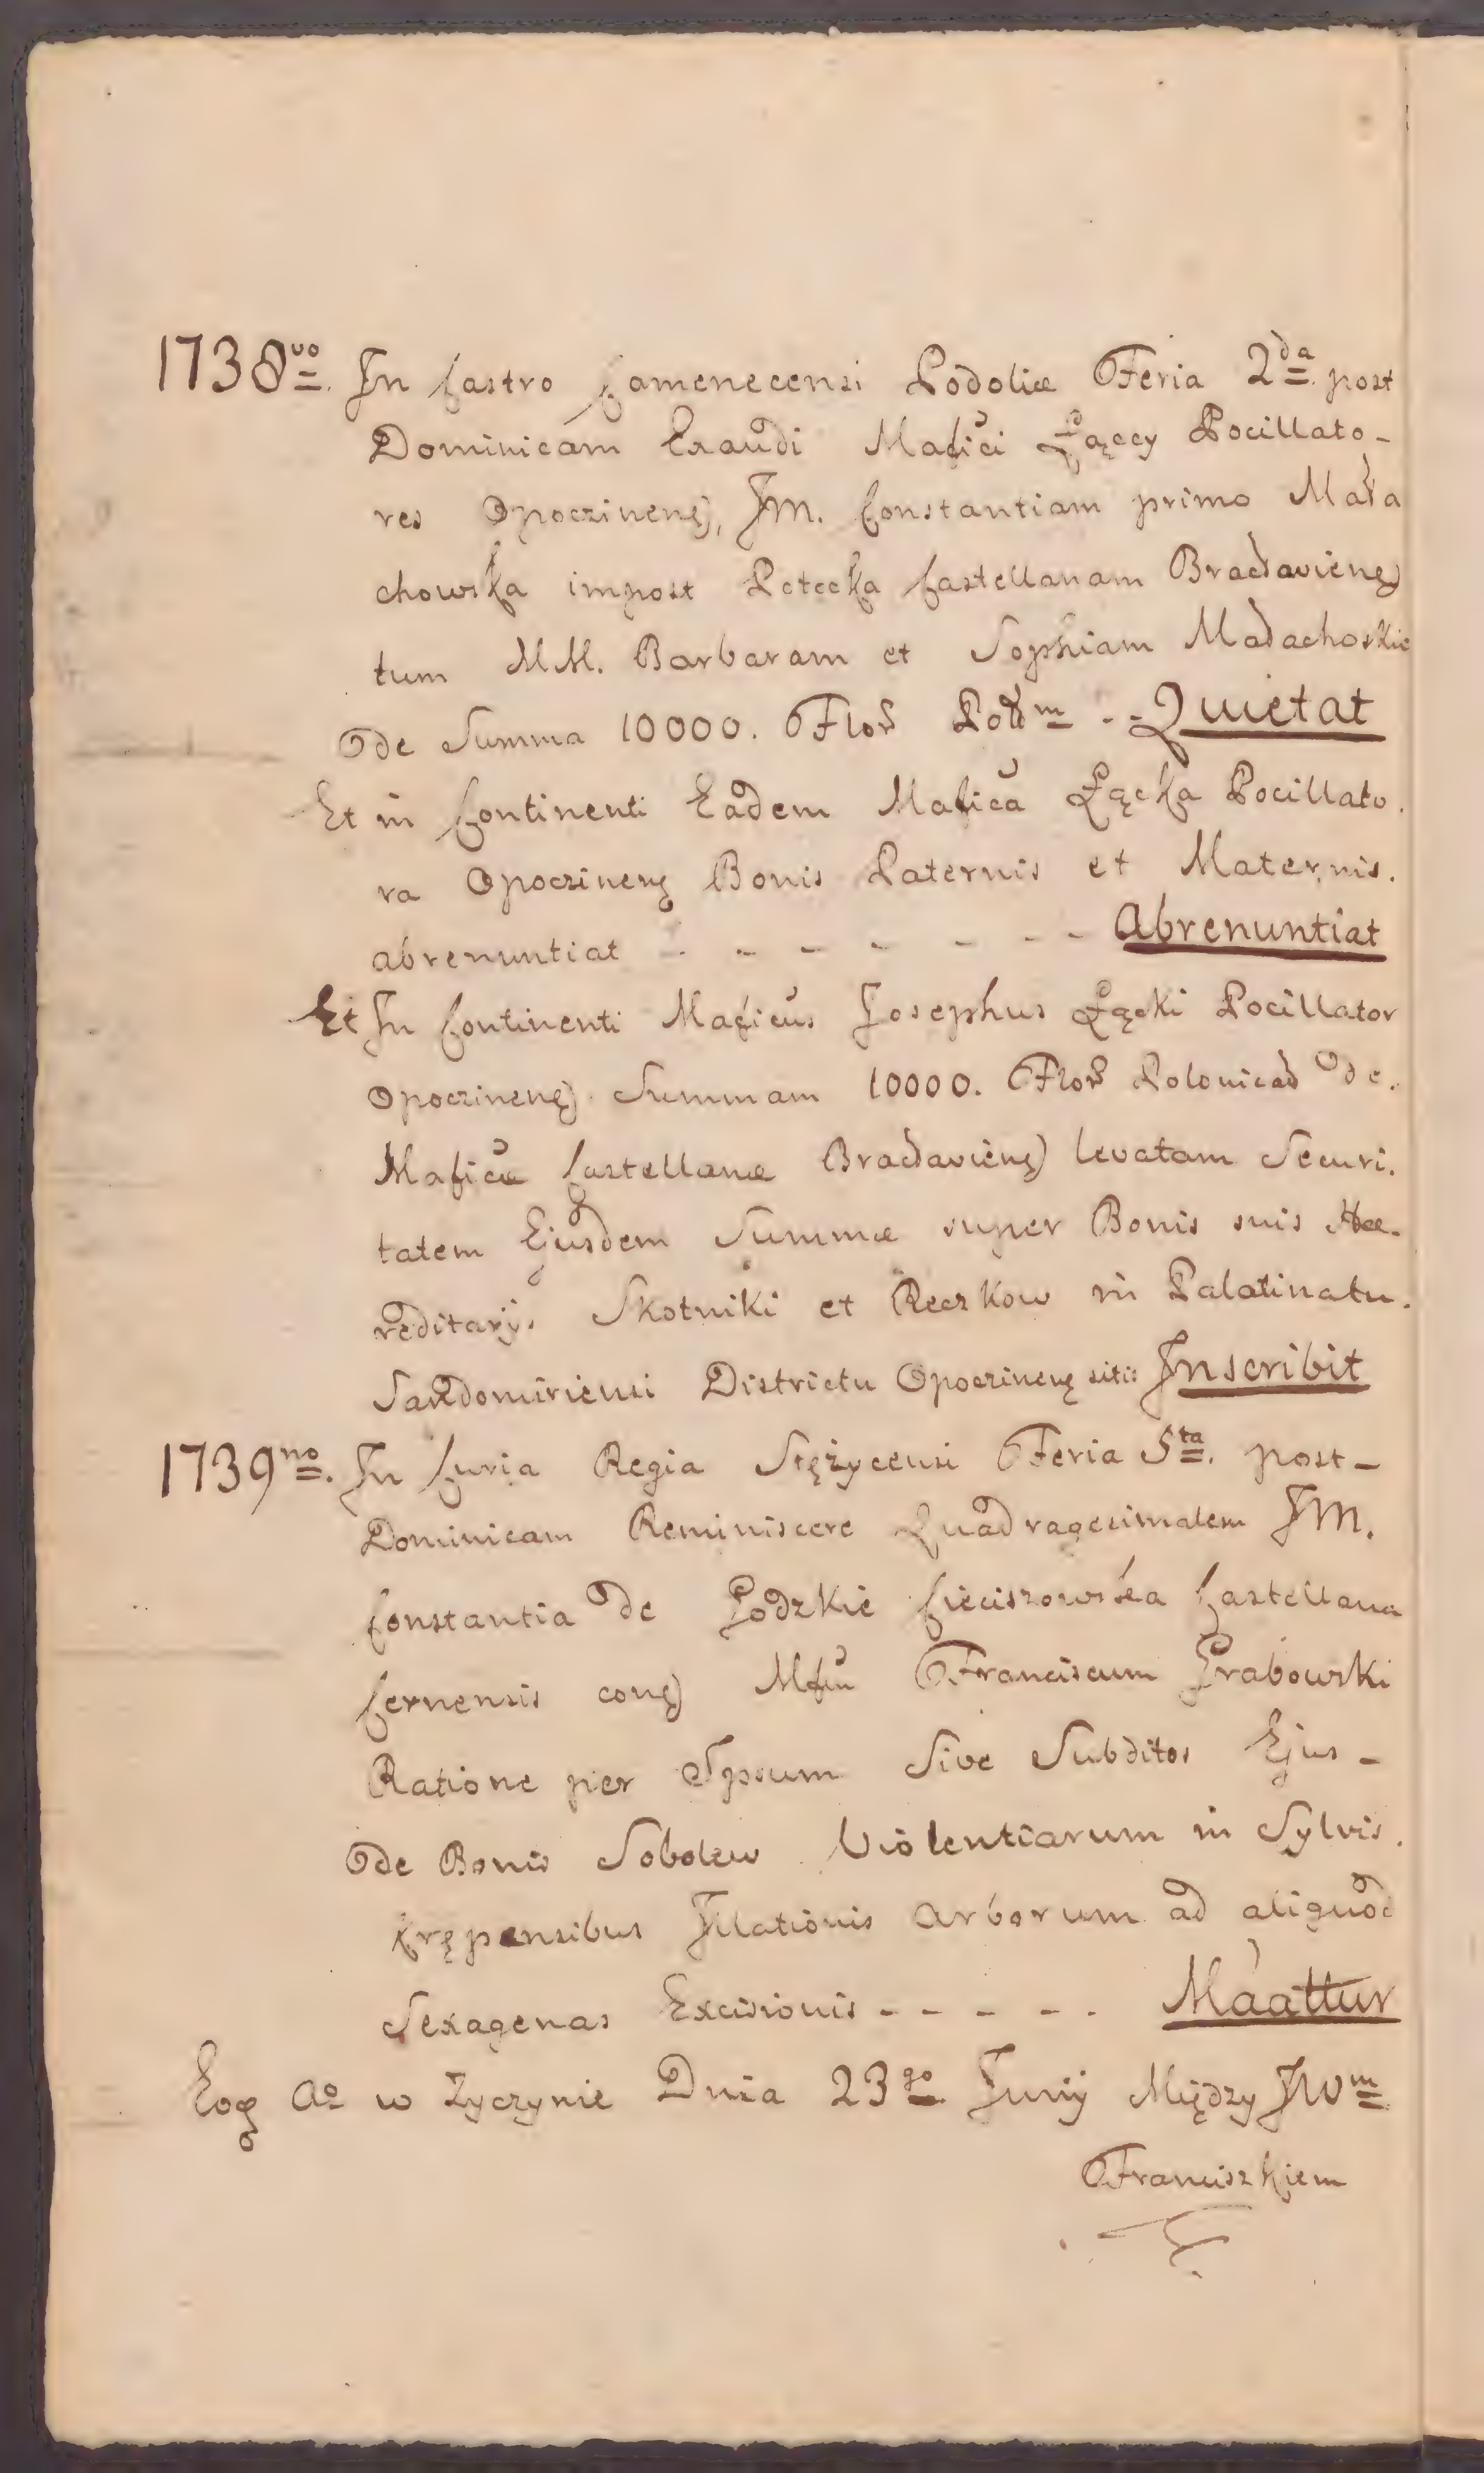 1738vo. In Castro Camenecensi Podoliæ Feria 2da post
Dominicam Exaudi Mafici Łączy Pocillato-
res Opoczinenẽ, JM. Constantiam primo Mała
chowska impost Potecka Castellanam Bracłavienẽ
tum MM. Barbaram et Sophiam Małachoskie
de Summa 10000. Flor Pollm - - Quietat
Et in Continenti Eadem Mafica Łącka Pocillato.
ra Opoczinenẽ Bonis Paternis et Maternis.
abrenuntiat - - - - - - - Abrenuntiat
Et In Continenti Maficus Josephus Łącki Pocillator
Opoczinenẽ Summam 10000. Flor Polonicał de.
Maficæ Castellanæ Bracłavienẽ levatam Securi.
tatem Ejusdem Summæ super Bonis suis Hæ-
reditarijs Skotniki et Reczkow in Palatinatu.
Sandomiriensi Districtu Opoczinenẽ sitis Inscribit
1739no. In Curia Regia Stężycensi Feria 5ta. post-
Dominicam Reminiscere Quadragesimalem JM.
Constantia de Łodzkie Cieciszowska Castellana
Cernensis conẽ Mfũ Franciscum Grabowski
Ratione per Ipsum Sive Subditos Ejus-
de Bonis Sobolew Violentiarum in Sylvis.
Krępensibus Illationis arborum ad aliquod
Sexagenas Excisionis - - - - - Maattur
Eoq Ao w Zyczynie Dnia 23go Junij Między JWm
Franciszkiem